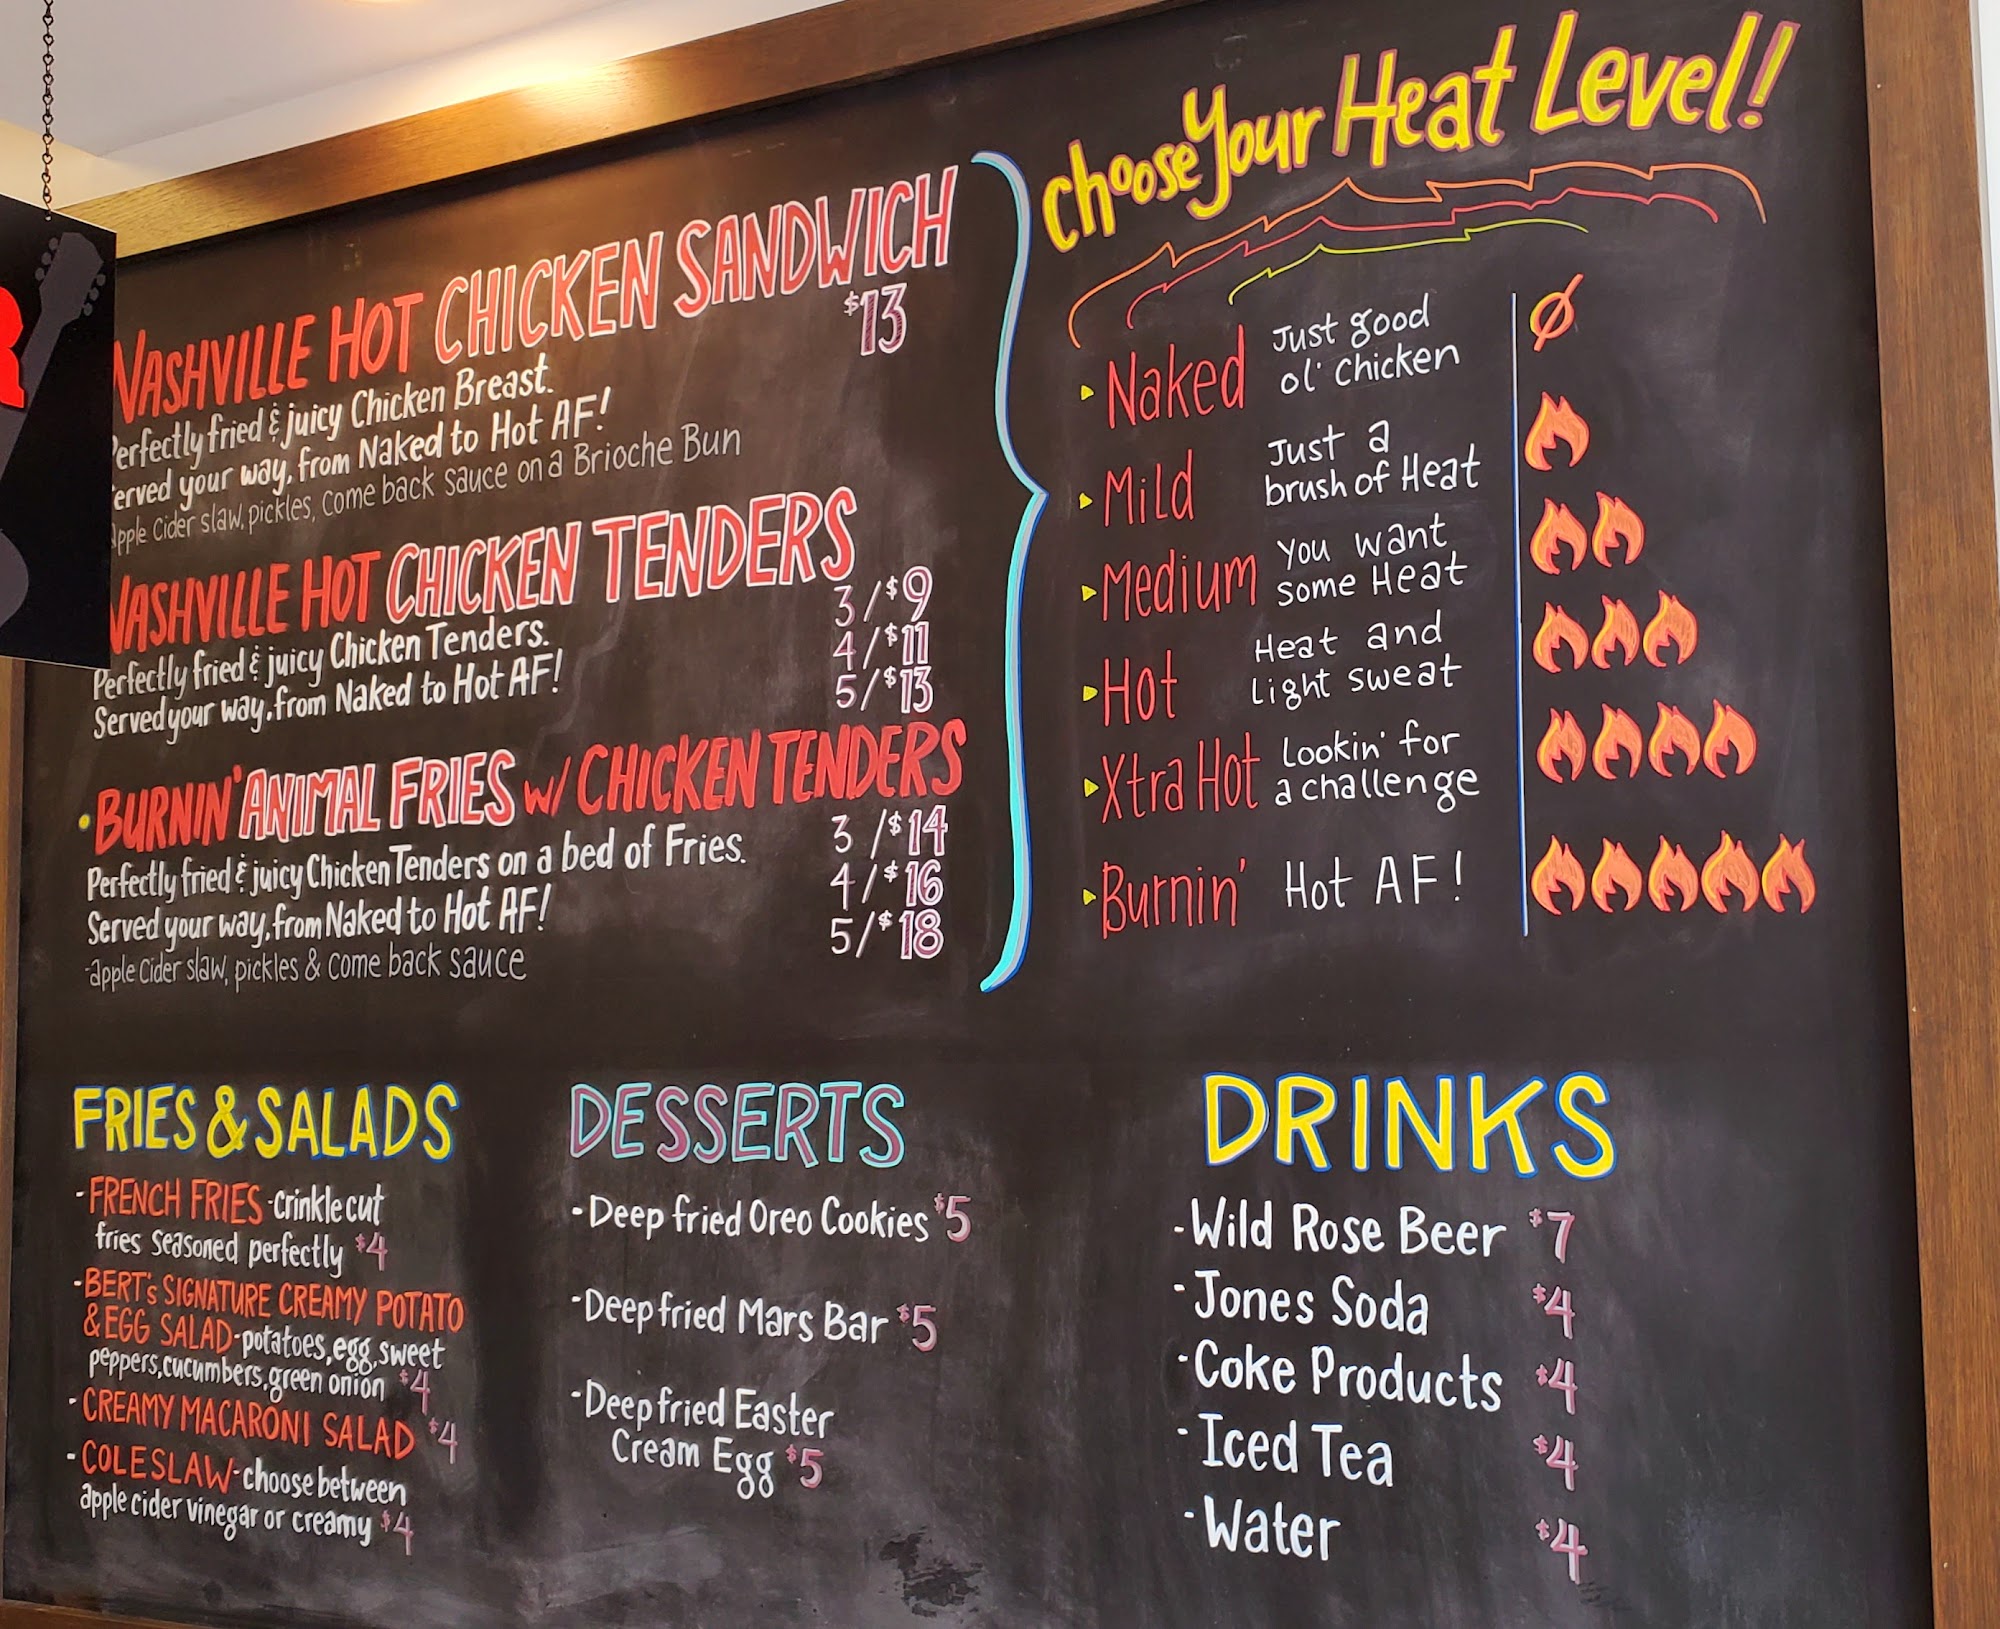 R
NASHVILLE HOT CHICKEN SANDWICH
$13
Perfectly fried & juicy Chicken Breast.
Served your way, from Naked to Hot AF!
apple Cider slaw, pickles, come back sauce on a Brioche Bun
NASHVILLE HOT CHICKEN TENDERS
Perfectly fried & juicy Chicken Tenders.
Served your way, from Naked to Hot AF!
3/$9
4/$11
5/$13
·BURNIN' ANIMAL FRIES w/ CHICKEN TENDERS
Perfectly fried & juicy Chicken Tenders on a bed of Fries.
Served your way, from Naked to Hot AF!
-apple Cider slaw, pickles & come back sauce
3/$14
4/$16
5/$18
Choose Your Heat Level!
Naked Just good
ol' Chicken
Mild Just a
brush of Heat
Medium You want
some Heat
Hot Heat and
Light sweat
Xtra Hot Lookin' for
a challenge
Burnin' Hot AF!
FRIES & SALADS
-FRENCH FRIES -crinkle cut
fries seasoned perfectly $4
-BERT's SIGNATURE CREAMY POTATO
& EGG SALAD-potatoes, egg, sweet
peppers, cucumbers, green onion $4
-CREAMY MACARONI SALAD $4
-COLESLAW-choose between
apple cider vinegar or creamy $4
DESSERTS
-Deep fried Oreo Cookies $5
-Deep fried Mars Bar $5
-Deep fried Easter
Cream Egg $5
DRINKS
-Wild Rose Beer $7
-Jones Soda $4
-Coke Products $4
-Iced Tea $4
-Water $4